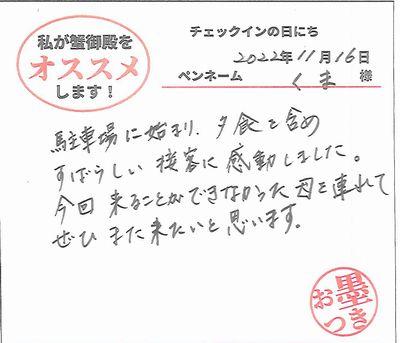 私が蟹御殿を
オススメ
します！
チェックインの日にち
2022年11月16日
ペンネーム くま 様
駐車場に始まり、夕食を含め
すばらしい接客に感動しました。
今回来ることができなかった母を連れて
ぜひまた来たいと思います。
お墨つき